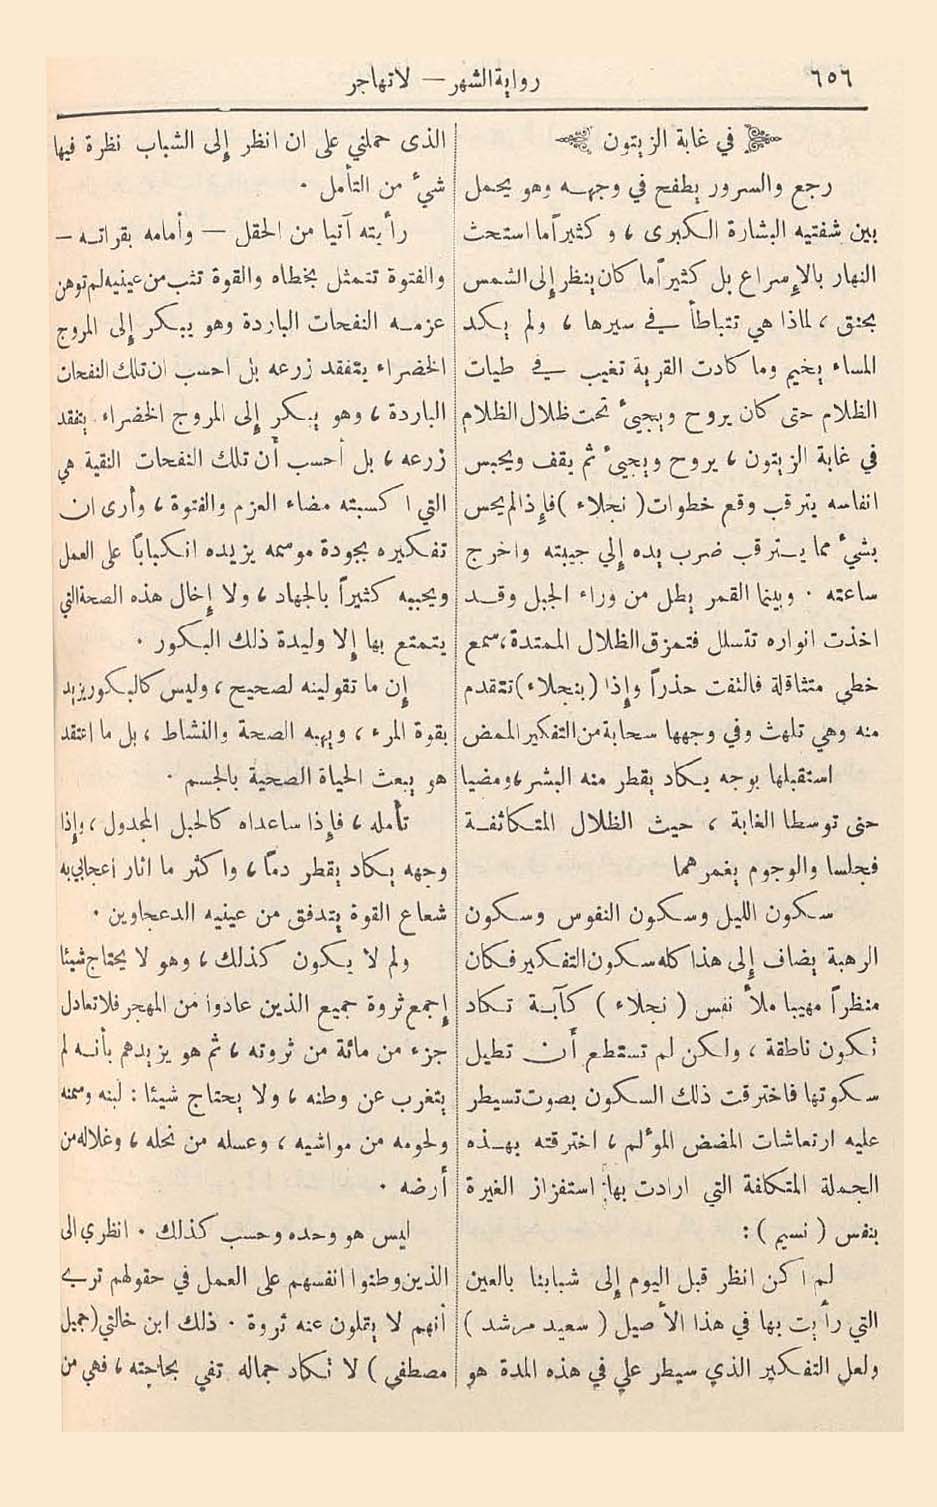 ٦٥٦
رواية الشهر — لا تهاجر
في غابة الزيتون
رجع والسرور يطفح في وجهه وهو يحمل
بين شفتيه البشارة الكبرى ، و كثيراً ما استحث
النهار بالإسراع بل كثيراً ما كان ينظر إلى الشمس
بحنق ، لماذا هي تتباطأ في سيرها ، ولم يكد
المساء يخيم وما كادت القرية تغيب في طيات
الظلام حتى كان يروح ويجيئ تحت ظلال الظلام
في غابة الزيتون ، يروح ويجيئ ثم يقف ويحبس
انفاسه يترقب وقع خطوات ( نجلاء ) فإذا لم يحس
بشيء مما يسترقب ضرب يده إلي جيبته واخرج
ساعته . وبينما القمر يطل من وراء الجبل وقد
اخذت انواره تتسلل فتمزق الظلال الممتدة ، سمع
خطي متثاقلة فالتفت حذراً وإذا ( بنجلاء ) تتقدم
منه وهي تلهث وفي وجهها سحابة من التفكير الممض
استقبلها بوجه يكاد يقطر منه البشر ، ومضيا
حتى توسطا الغابة ، حيث الظلال المتكاثفة
فجلسا والوجوم يغمرهما
سكون الليل وسكون النفوس وسكون
الرهبة يضاف إلى هذا كله سكون التفكير فكان
منظراً مهيبا ملأ نفس ( نجلاء ) كآبة تكاد
تكون ناطقة ، ولكن لم تستطع أن تطيل
سكوتها فاخترقت ذلك السكون بصوت تسيطر
عليه ارتعاشات المضض المؤلم ، اخترقته بهذه
الجملة المتكلفة التي ارادت بها استفزاز الغيرة
بنفس ( نسيم ) :
لم اكن انظر قبل اليوم إلى شبابنا بالعين
التي رأيت بها في هذا الأصيل ( سعيد مرشد )
ولعل التفكير الذي سيطر علي في هذه المدة هو
الذى حملني على ان انظر إلى الشباب نظرة فيها
شيء من التأمل .
رأيته آتيا من الحقل — وأمامه بقراته —
والفتوة تتمثل بخطاه والقوة تثب من عينيه لم توهن
عزمه النفحات الباردة وهو يبكر إلى المروج
الخضراء يتفقد زرعه بل احسب ان تلك النفحات
الباردة ، وهو يبكر إلى المروج الخضراء يتفقد
زرعه ، بل أحسب أن تلك النفحات النقية هي
التي اكسبته مضاء العزم والفتوة ، وأرى ان
تفكيره بجودة موسمه يزيده انكباباً على العمل
ويحببه كثيراً بالجهاد ، ولا إخال هذه الصحة التي
يتمتع بها إلا وليدة ذلك البكور .
إن ما تقولينه لصحيح ، وليس كالبكور يزيد
بقوة المرء ، ويهبه الصحة والنشاط ، بل ما اعتقد
هو يبعث الحياة الصحية بالجسم .
تأمله ، فإذا ساعداه كالحبل المجدول ، وإذا
وجهه يكاد يقطر دمًا ، واكثر ما اثار اعجابي به
شعاع القوة يتدفق من عينيه الدعجاوين .
ولم لا يكون كذلك ، وهو لا يحتاج شيئا
إجمع ثروة جميع الذين عادوا من المهجر فلا تعادل
جزء من مائة من ثروته ، ثم هو يزيدهم بأنه لم
يتغرب عن وطنه ، ولا يحتاج شيئا : لبنه وسمنه
ولحومه من مواشيه ، وعسله من نحله ، وغلاله من
أرضه .
ليس هو وحده وحسب كذلك . انظري الى
الذين وطنوا انفسهم على العمل في حقولهم تري
أنهم لا يقلون عنه ثروة . ذلك ابن خالتي ( جميل
مصطفي ) لا تكاد جماله تفي بحاجته ، فهي من